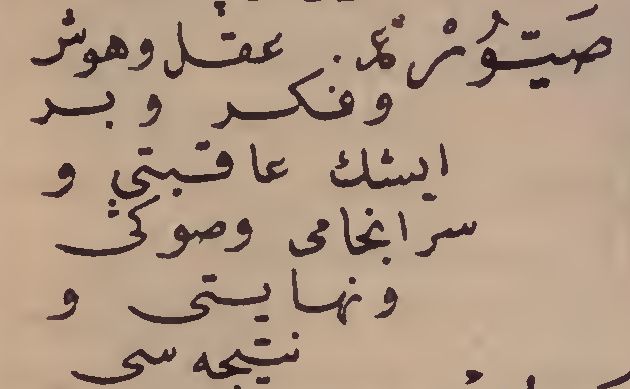 صَيَّوُرْ ع. عقل وهوش
وفكر و بر
ايشك عاقبتي و
سرانجامى وصوكى
ونهايتى و
نتيجه سى